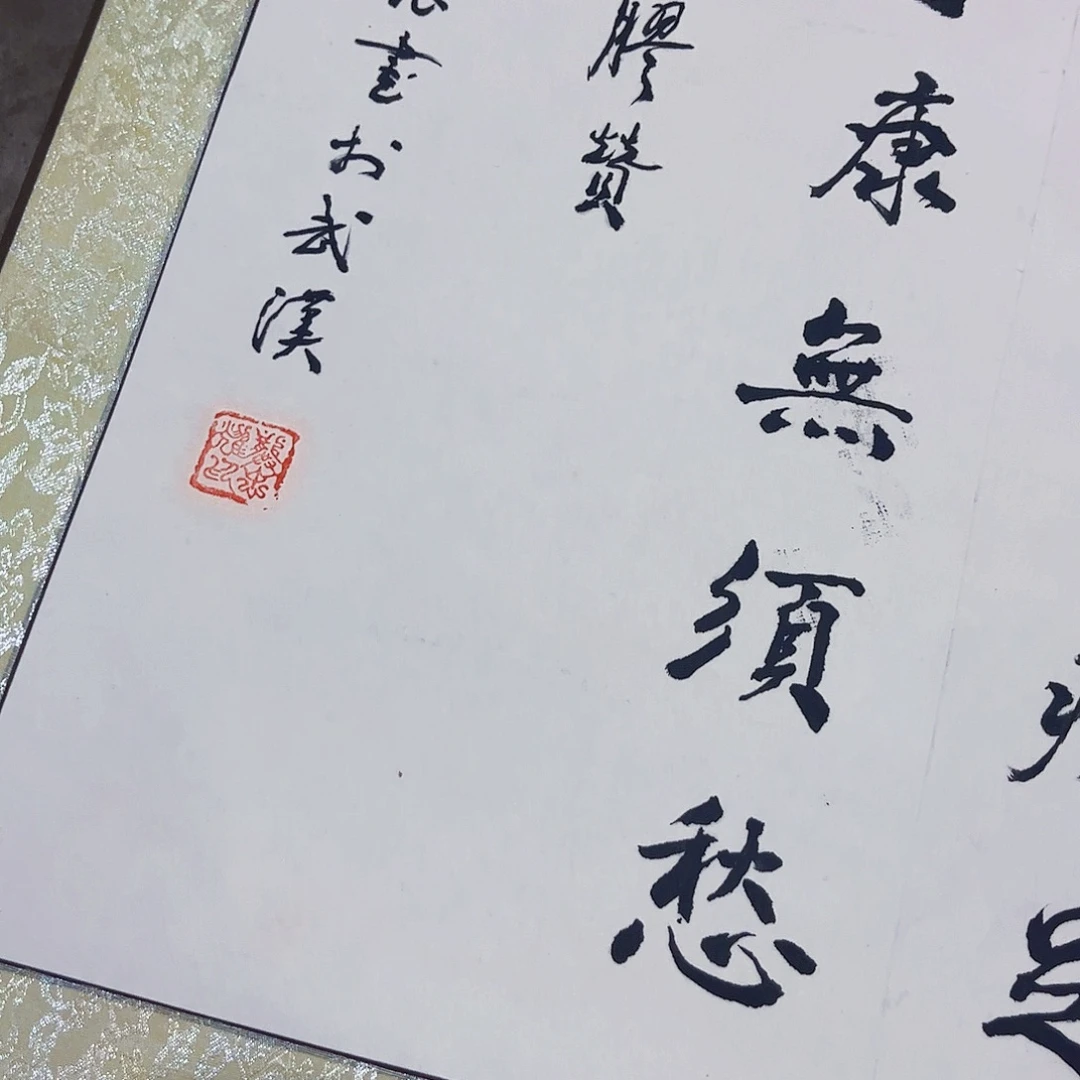 足
康無須愁
膠贊
書於武漢